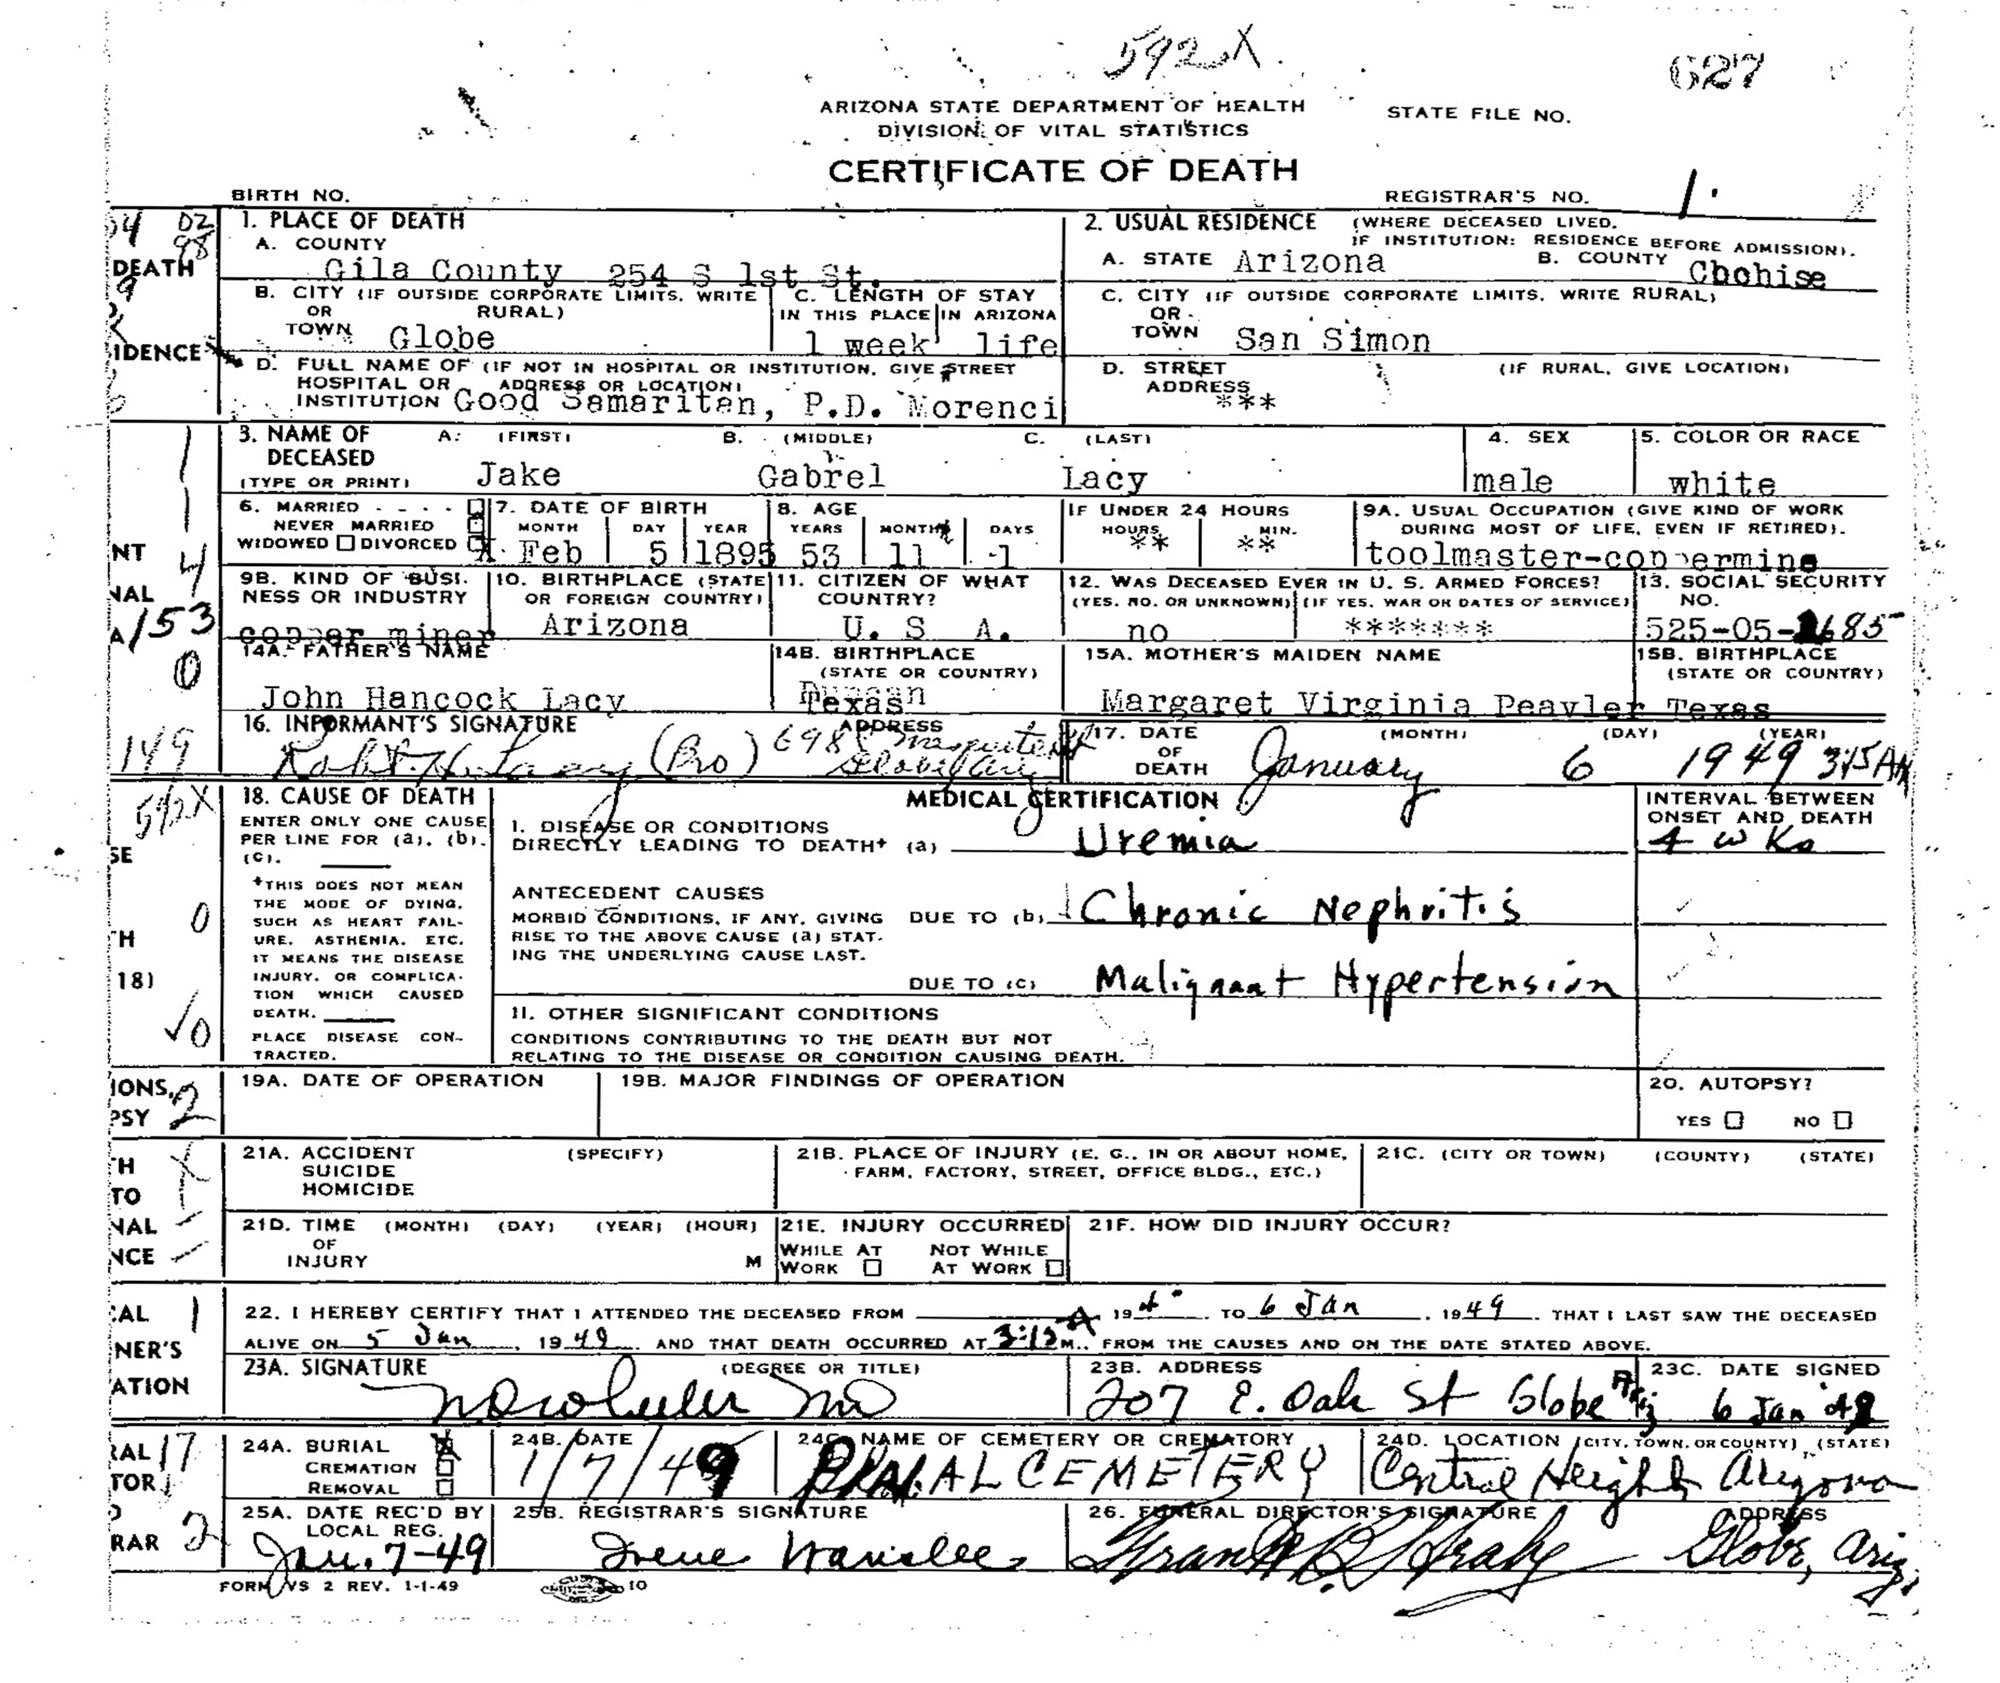 592X
627
ARIZONA STATE DEPARTMENT OF HEALTH
STATE FILE NO.
DIVISION OF VITAL STATISTICS
CERTIFICATE OF DEATH
BIRTH NO.
REGISTRAR'S NO. 1.
1. PLACE OF DEATH
A. COUNTY
Gila County 254 S 1st St.
2. USUAL RESIDENCE (WHERE DECEASED LIVED.
IF INSTITUTION: RESIDENCE BEFORE ADMISSION).
A. STATE Arizona B. COUNTY Cbchise
DEATH
B. CITY (IF OUTSIDE CORPORATE LIMITS, WRITE
OR RURAL)
TOWN Globe
C. LENGTH OF STAY
IN THIS PLACE IN ARIZONA
1 week life
C. CITY (IF OUTSIDE CORPORATE LIMITS, WRITE RURAL)
OR
TOWN San Simon
IDENCE
D. FULL NAME OF (IF NOT IN HOSPITAL OR INSTITUTION, GIVE STREET
HOSPITAL OR ADDRESS OR LOCATION)
INSTITUTION Good Samaritan, P.D. Morenci
D. STREET (IF RURAL, GIVE LOCATION)
ADDRESS
***
3. NAME OF A. (FIRST) B. (MIDDLE) C. (LAST)
DECEASED
(TYPE OR PRINT) Jake Gabrel Lacy
4. SEX
male
5. COLOR OR RACE
white
6. MARRIED
NEVER MARRIED
WIDOWED DIVORCED X
7. DATE OF BIRTH
MONTH DAY YEAR
Feb 5 1895
8. AGE
YEARS MONTHS DAYS
53 11 1
IF UNDER 24 HOURS
HOURS MIN.
** **
9A. USUAL OCCUPATION (GIVE KIND OF WORK
DURING MOST OF LIFE, EVEN IF RETIRED).
toolmaster-coppermine
NT 4
NAL
A 153
0
9B. KIND OF BUSI-
NESS OR INDUSTRY
copper miner
10. BIRTHPLACE (STATE
OR FOREIGN COUNTRY)
Arizona
11. CITIZEN OF WHAT
COUNTRY?
U. S A.
12. WAS DECEASED EVER IN U. S. ARMED FORCES?
(YES, NO, OR UNKNOWN) (IF YES, WAR OR DATES OF SERVICE)
no *******
13. SOCIAL SECURITY
NO.
525-05-1685
14A. FATHER'S NAME
John Hancock Lacy
14B. BIRTHPLACE
(STATE OR COUNTRY)
Texas
15A. MOTHER'S MAIDEN NAME
Margaret Virginia Peavler
15B. BIRTHPLACE
(STATE OR COUNTRY)
Texas
149
16. INFORMANT'S SIGNATURE ADDRESS
Robt. H. Lacy (Bro) 698 Mesquite St
Globe, Ariz
17. DATE (MONTH) (DAY) (YEAR)
OF
DEATH January 6 1949 3:15 AM
592X
18. CAUSE OF DEATH
ENTER ONLY ONE CAUSE
PER LINE FOR (a), (b),
(c).
+THIS DOES NOT MEAN
THE MODE OF DYING,
SUCH AS HEART FAIL-
URE, ASTHENIA, ETC.
IT MEANS THE DISEASE
INJURY, OR COMPLICA-
TION WHICH CAUSED
DEATH.
PLACE DISEASE CON-
TRACTED.
MEDICAL CERTIFICATION
I. DISEASE OR CONDITIONS
DIRECTLY LEADING TO DEATH+ (a) Uremia
ANTECEDENT CAUSES
MORBID CONDITIONS, IF ANY, GIVING DUE TO (b) Chronic Nephritis
RISE TO THE ABOVE CAUSE (a) STAT-
ING THE UNDERLYING CAUSE LAST.
DUE TO (c) Malignant Hypertension
II. OTHER SIGNIFICANT CONDITIONS
CONDITIONS CONTRIBUTING TO THE DEATH BUT NOT
RELATING TO THE DISEASE OR CONDITION CAUSING DEATH.
INTERVAL BETWEEN
ONSET AND DEATH
4 wks
SE
0
TH
18)
0
IONS,
PSY 2
19A. DATE OF OPERATION
19B. MAJOR FINDINGS OF OPERATION
20. AUTOPSY?
YES NO
TH
TO
NAL
NCE
21A. ACCIDENT (SPECIFY)
SUICIDE
HOMICIDE
21B. PLACE OF INJURY (E. G., IN OR ABOUT HOME,
FARM, FACTORY, STREET, OFFICE BLDG., ETC.)
21C. (CITY OR TOWN) (COUNTY) (STATE)
21D. TIME (MONTH) (DAY) (YEAR) (HOUR)
OF
INJURY M
21E. INJURY OCCURRED
WHILE AT NOT WHILE
WORK AT WORK
21F. HOW DID INJURY OCCUR?
CAL 1
NER'S
ATION
22. I HEREBY CERTIFY THAT I ATTENDED THE DECEASED FROM 19 TO 6 Jan, 1949, THAT I LAST SAW THE DECEASED
ALIVE ON 5 Jan, 1949 AND THAT DEATH OCCURRED AT 3:15 A M., FROM THE CAUSES AND ON THE DATE STATED ABOVE.
23A. SIGNATURE (DEGREE OR TITLE)
MD
23B. ADDRESS
207 E. Oak St Globe Ariz
23C. DATE SIGNED
6 Jan 49
RAL 17
TOR
24A. BURIAL X
CREMATION
REMOVAL
24B. DATE
1/7/49
24C. NAME OF CEMETERY OR CREMATORY
PINAL CEMETERY
24D. LOCATION (CITY, TOWN, OR COUNTY) (STATE)
Central Heights Arizona
RAR 2
25A. DATE REC'D BY
LOCAL REG.
Jan. 7-49
25B. REGISTRAR'S SIGNATURE
Irene
26. FUNERAL DIRECTOR'S SIGNATURE ADDRESS
Frank B. Globe, Ariz.
FORM VS 2 REV. 1-1-49
10